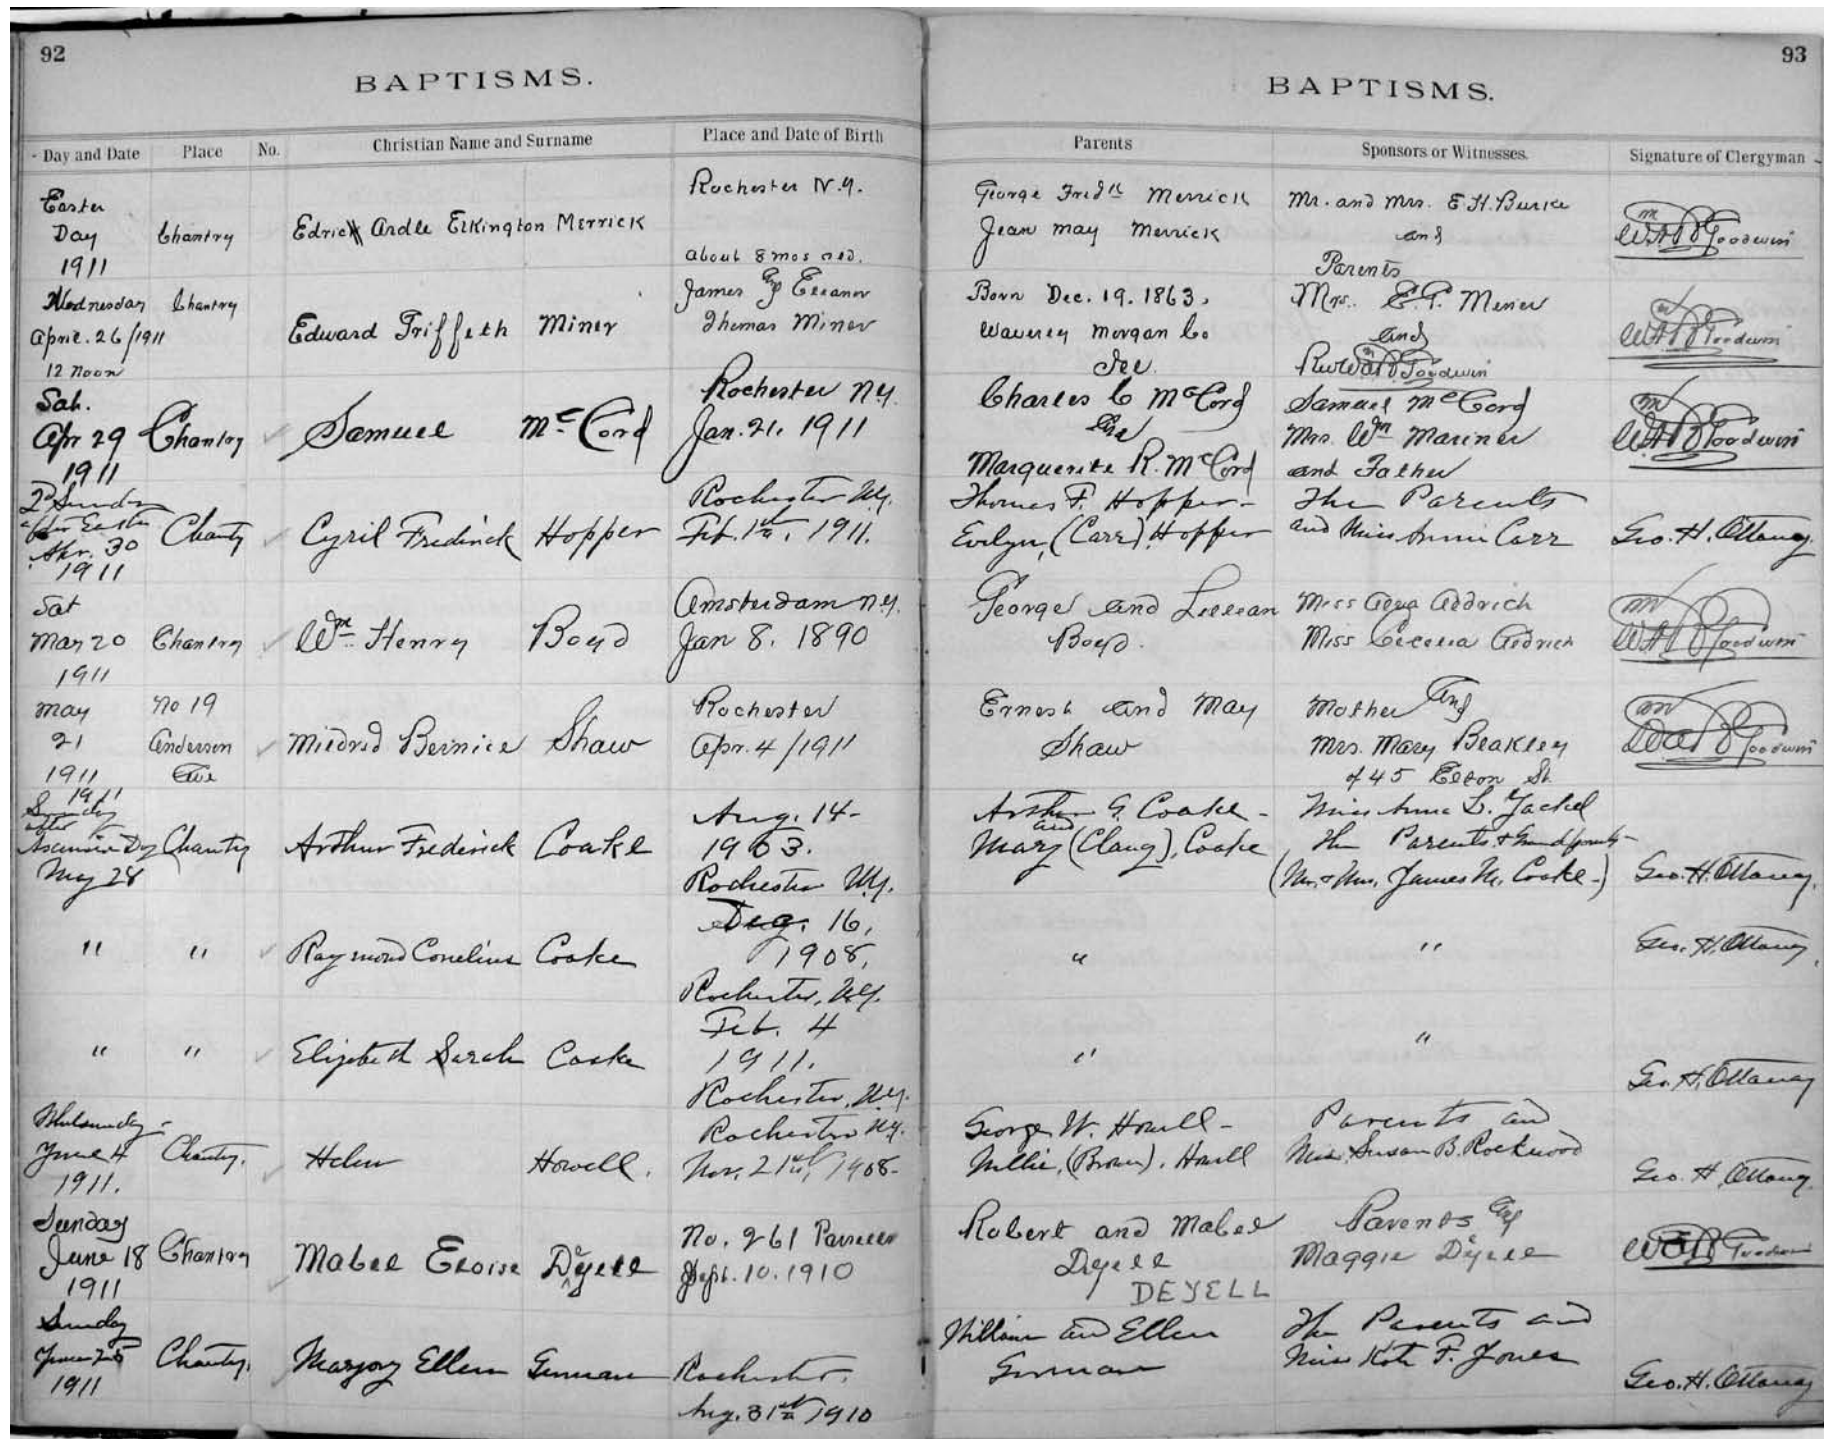 92
BAPTISMS.
Day and Date Place No. Christian Name and Surname Place and Date of Birth
Easter
Day
1911
Chantry
Edrick Ardle Elkington Merrick
Rochester N.Y.
about 8 mos old.
Wednesday Chantry
April. 26/1911
12 Noon
Edward Griffeth Miner
James and Eleanor
Thomas Miner
Sat.
Apr 29
1911
Chantry
Samuel McCord
Rochester N.Y.
Jan. 21. 1911
2d Sunday
after Easter
Apr. 30
1911
Chantry
Cyril Frederick Hopper
Rochester N.Y.
Feb. 1st, 1911.
Sat
May 20
1911
Chantry
Wm Henry Boyd
Amsterdam N.Y.
Jan 8. 1890
May
21
1911
No 19
Anderson
Ave
Mildred Bernice Shaw
Rochester
Apr. 4/1911
1911
Sunday
after
Ascension Day
May 28
Chantry
Arthur Frederick Coake
Aug. 14-
1903.
Rochester N.Y.
" "
Raymond Cornelius Coake
Dec. 16,
1908,
Rochester, N.Y.
" "
Elizabeth Sarah Coake
Feb. 4
1911.
Rochester, N.Y.
Whitsunday-
June 4
1911.
Chantry.
Helen Howell.
Rochester N.Y.
Nov. 21st, 1908-
Sunday
June 18
1911
Chantry
Mabel Eloise Deyell
No. 261 Parsells
Sept. 10. 1910
Sunday
June 25
1911
Chantry.
Marjory Ellen Gorman
Rochester.
Aug. 31st 1910
93
BAPTISMS.
Parents Sponsors or Witnesses. Signature of Clergyman
George Fredk Merrick
Jean May Merrick
Mr. and Mrs. E.H. Burke
and
Parents
Wm A R Goodwin
Born Dec. 19. 1863.
Waverly Morgan Co
Ill.
Mrs. E.G. Miner
and
Rev Wm A R Goodwin
Wm A R Goodwin
Charles C McCord
and
Marguerite R. McCord
Samuel McCord
Mrs. Wm Mariner
and Father
Wm A R Goodwin
Thomas F. Hopper-
Evelyn, (Carr), Hopper
The Parents
and Miss Annie Carr
Geo. H. Ottaway.
George and Lillian
Boyd.
Miss Adra Aldrich
Miss Cecelia Aldrich
Wm A R Goodwin
Ernest and May
Shaw
Mother and
Mrs. Mary Beakley
of 45 Elton St.
Wm A R Goodwin
Arthur G. Coake-
and
Mary (Clang), Coake
Miss Anna L. Jackel
The Parents & Grandparents-
(Mr. & Mrs. James M. Coake-)
Geo. H. Ottaway.
" "
Geo. H. Ottaway,
" "
Geo. H. Ottaway
George W. Howell-
Nellie, (Brown), Howell
Parents and
Miss Susan B. Rockwood
Geo. H. Ottaway.
Robert and Mabel
Dyell
DEYELL
Parents and
Maggie Deyell
W A R Goodwin
William and Ellen
Gorman
The Parents and
Miss Kate F. Jones
Geo. H. Ottaway